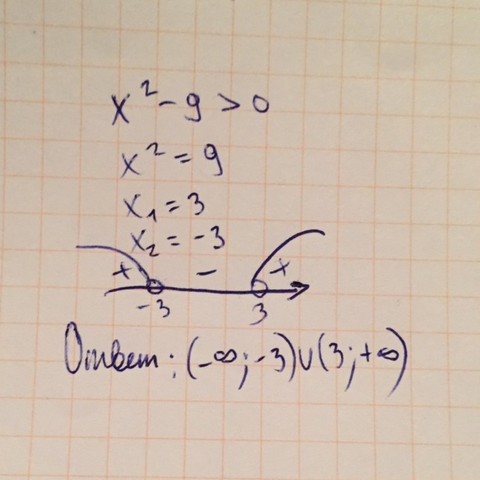 x² - 9 > 0
x² = 9
x₁ = 3
x₂ = -3
+ - +
-3 3
Ответ: (-∞; -3)∪(3; +∞)